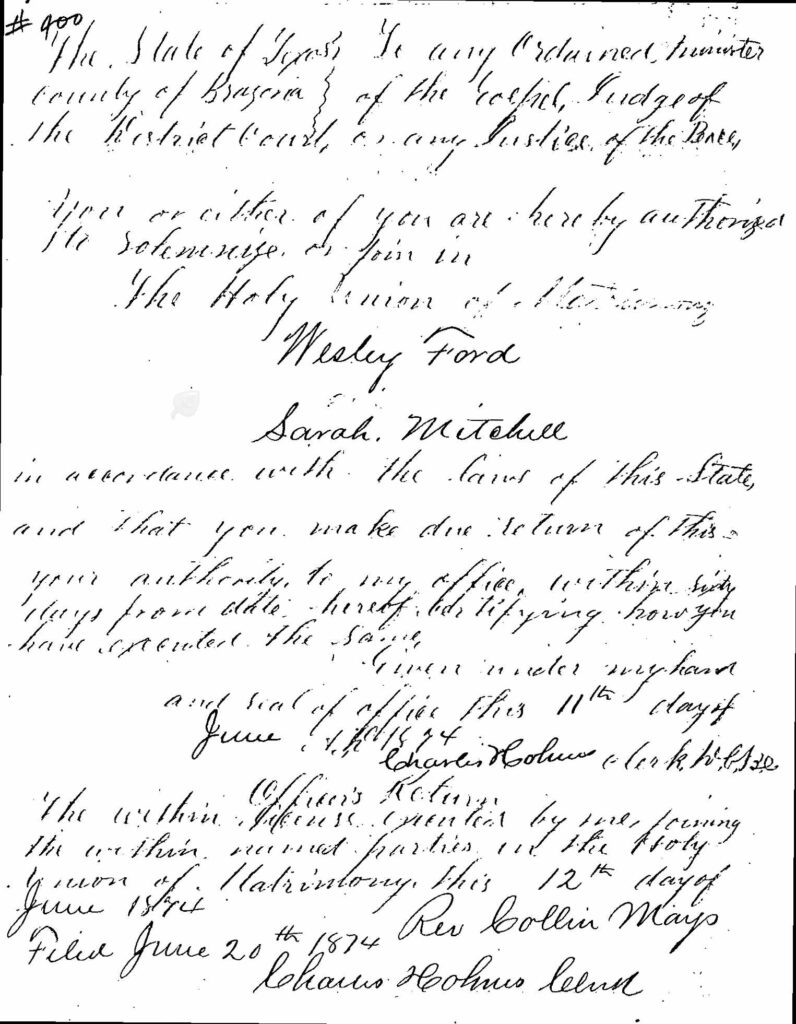 # 900
The State of Texas } To any Ordained Minister
County of Brazoria } of the Gospel, Judge of
the District Court, or any Justice of the Peace,
You or either of you are hereby authorized
to solemnize or join in
The Holy Union of Matrimony
Wesley Ford
Sarah. Mitchell
in accordance with the laws of this State,
and that you make due return of this
your authority, to my office, within sixty
days from date hereof certifying how you
have executed the same,
Given under my hand
and seal of office this 11th day of
June A.D. 1874
Charles Holmes Clerk
Officer's Return
The within license executed by me, joining
the within named parties in the Holy
Union of Matrimony, this 12th day of
June 1874
Rev Collin Mays
Filed June 20th 1874
Charles Holmes Clerk